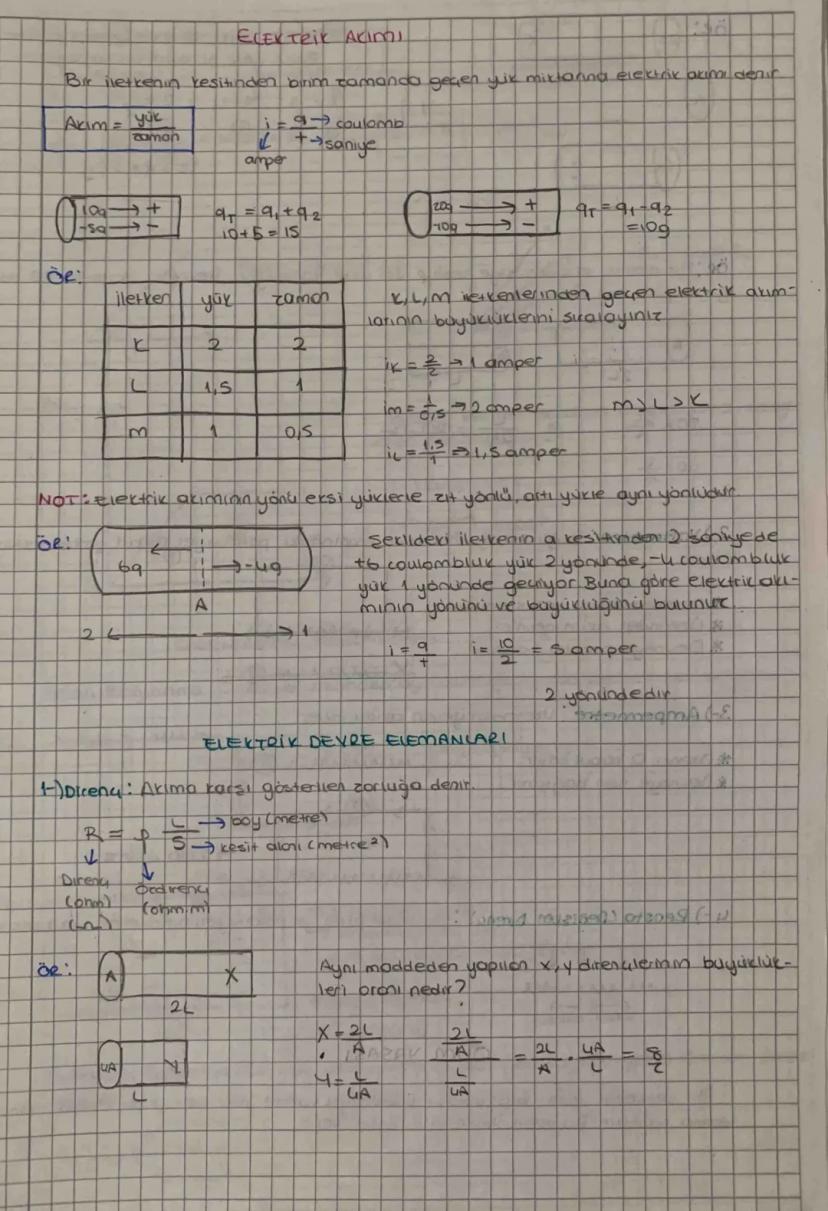 ELEKTRİK AKIMI
Bir iletkenin kesitinden birim zamanda geçen yük miktarına elektrik akımı denir
Akım = yük / zaman
i = q → coulomb
t → saniye
↓ amper
10q → +
-5q → -
qT = q1 + q2
10+5=15
20q → +
-10q → -
qT = q1 - q2
= 10q
ÖR:
iletken yük zaman
K 2 2
L 1,5 1
m 1 0,5
K, L, M iletkenlerinden geçen elektrik akım-
larının büyüklüklerini sıralayınız
iK = 2/2 → 1 amper
im = 1/0,5 → 2 amper
m > L > K
iL = 1.5/1 → 1,5 amper
NOT: elektrik akımının yönü eksi yüklerle zıt yönlü, artı yükle aynı yönlüdür.
ÖR:
6q ← → -4q
A
2 ← → 1
Şekildeki iletkenin a kesitinden 2 saniyede
+6 coulombluk yük 2 yönünde, -4 coulombluk
yük 1 yönünde geçiyor. Buna göre elektrik akı-
mının yönünü ve büyüklüğünü bulunuz.
i = q/t i = 10/2 = 5 amper
2 yönündedir
ELEKTRİK DEVRE ELEMANLARI
1-) Direnç: Akıma karşı gösterilen zorluğa denir.
R = ρ L/S
L → boy (metre)
S → kesit alanı (metre²)
↓ Direnç (ohm) (Ω)
↓ Özdirenç (ohm.m)
ÖR:
A X
2L
4A Y
L
Aynı maddeden yapılan x, y dirençlerinin büyüklük-
leri oranı nedir?
X = 2L/A
Y = L/4A
2L/A / L/4A = 2L/A . 4A/L = 8/2